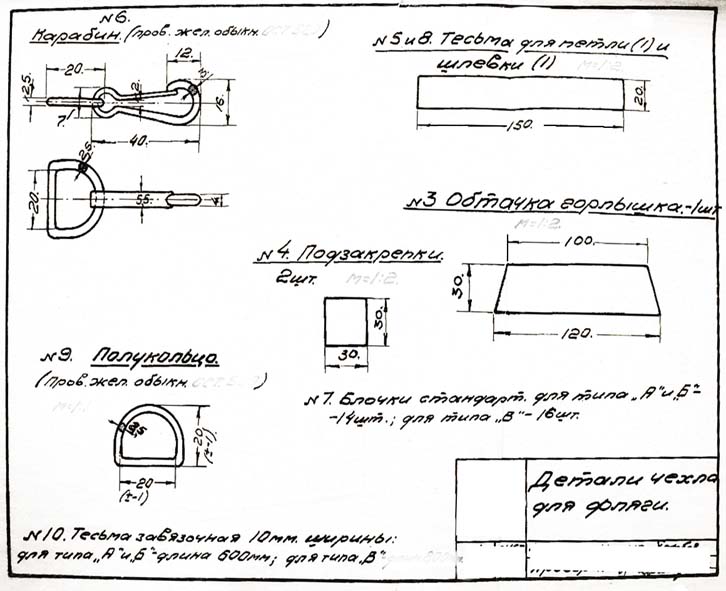 №6.
Карабин. (пров. жел. обыкн.
12.
20.
2,5.
2.
3.
16.
7.
40.
2,5.
20.
5,5.
4.
№5 и 8. Тесьма для петли (1) и
шлевки (1) М=1:2
20.
150.
№3 Обтачка горлышка.-1шт
М=1:2.
100.
30.
120.
№4. Подзакрепки.
2шт. М=1:2.
30.
30.
№9. Полукольцо.
(Пров. жел. обыкн.
М=1:1
2,5
20
(±-1)
20
(±-1)
№7. Блочки стандарт. для типа „А" и „Б"-
-14шт.; для типа „В"- 16шт.
Детали чехла
для фляги.
№10. Тесьма завязочная 10мм. ширины:
для типа „А" и „Б"-длина 600мм; для типа „В"-